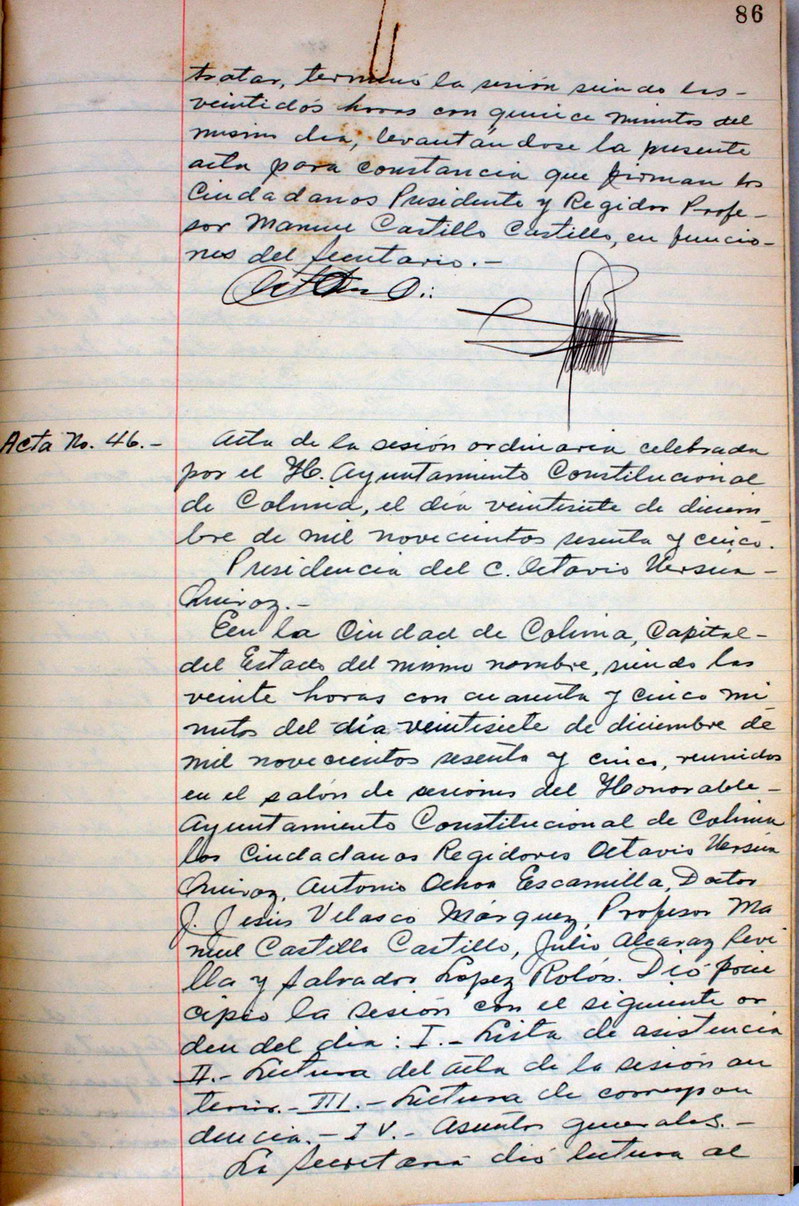 86
tratar, terminó la sesión siendo las-
veintidós horas con quince minutos del
mismo día, levantándose la presente
acta para constancia que firman los
Ciudadanos Presidente y Regidor Profe-
sor Manuel Castillo Castillo, en funcio-
nes del Secretario.-
Acta No. 46.-
Acta de la sesión ordinaria celebrada
por el H. Ayuntamiento Constitucional
de Colima, el día veintisiete de diciem-
bre de mil novecientos sesenta y cinco.
Presidencia del C. Octavio Ursúa-
Quiroz.-
En la Ciudad de Colima, Capital-
del Estado del mismo nombre, siendo las
veinte horas con cuarenta y cinco mi
nutos del día veintisiete de diciembre de
mil novecientos sesenta y cinco, reunidos
en el salón de sesiones del Honorable-
Ayuntamiento Constitucional de Colima
los Ciudadanos Regidores Octavio Ursúa
Quiroz, Antonio Ochoa Escamilla, Doctor
J. Jesús Velasco Márquez, Profesor Ma
nuel Castillo Castillo, Julio Alcaraz Sevi
lla y Salvador López Rolón. Dió prin
cipio la sesión con el siguiente or
den del día: I.- Lista de asistencia
II.- Lectura del acta de la sesión an
terior.- III.- Lectura de correspon
dencia.- IV.- Asuntos generales.-
La Secretaría dió lectura al